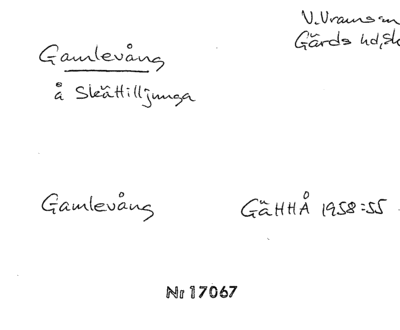 V. Vramsm
Gärds hd, Sk
Gamlevång
å Skättilljunga
Gamlevång
GäHHÅ 1958:55
Nr 17067